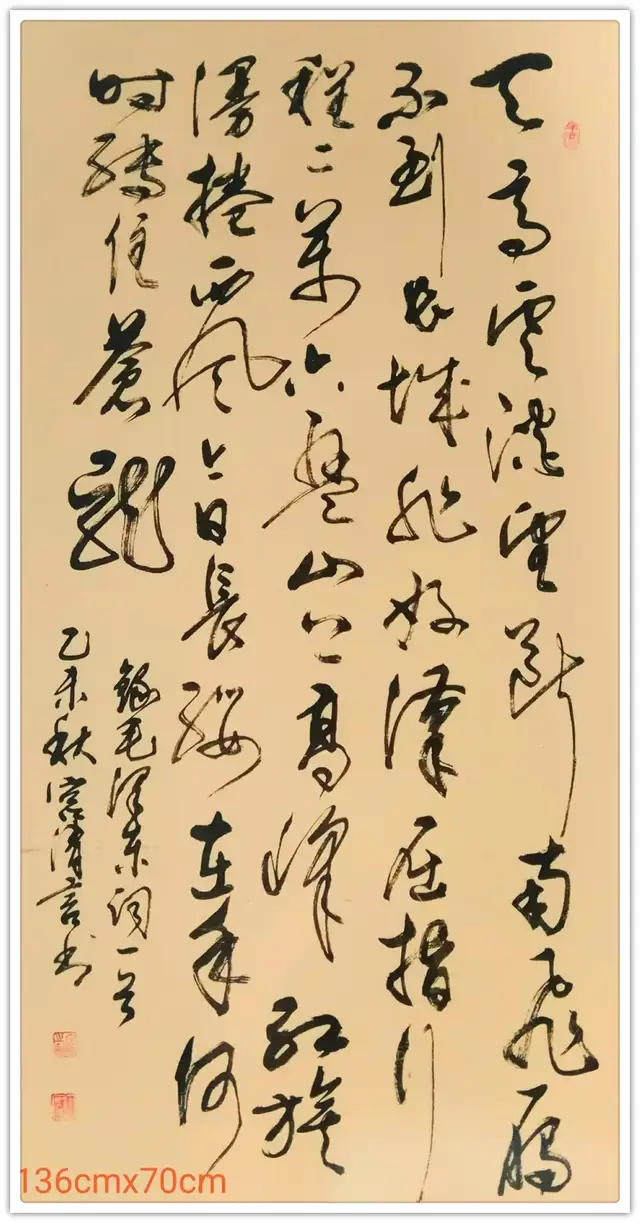 天高雲淡望斷南飛雁
不到长城非好漢屈指行
程二萬六盤山上高峰红旗
漫捲西风今日長缨在手何
时缚住蒼龍
錄毛泽东词一首
乙未秋清言书
136cmx70cm